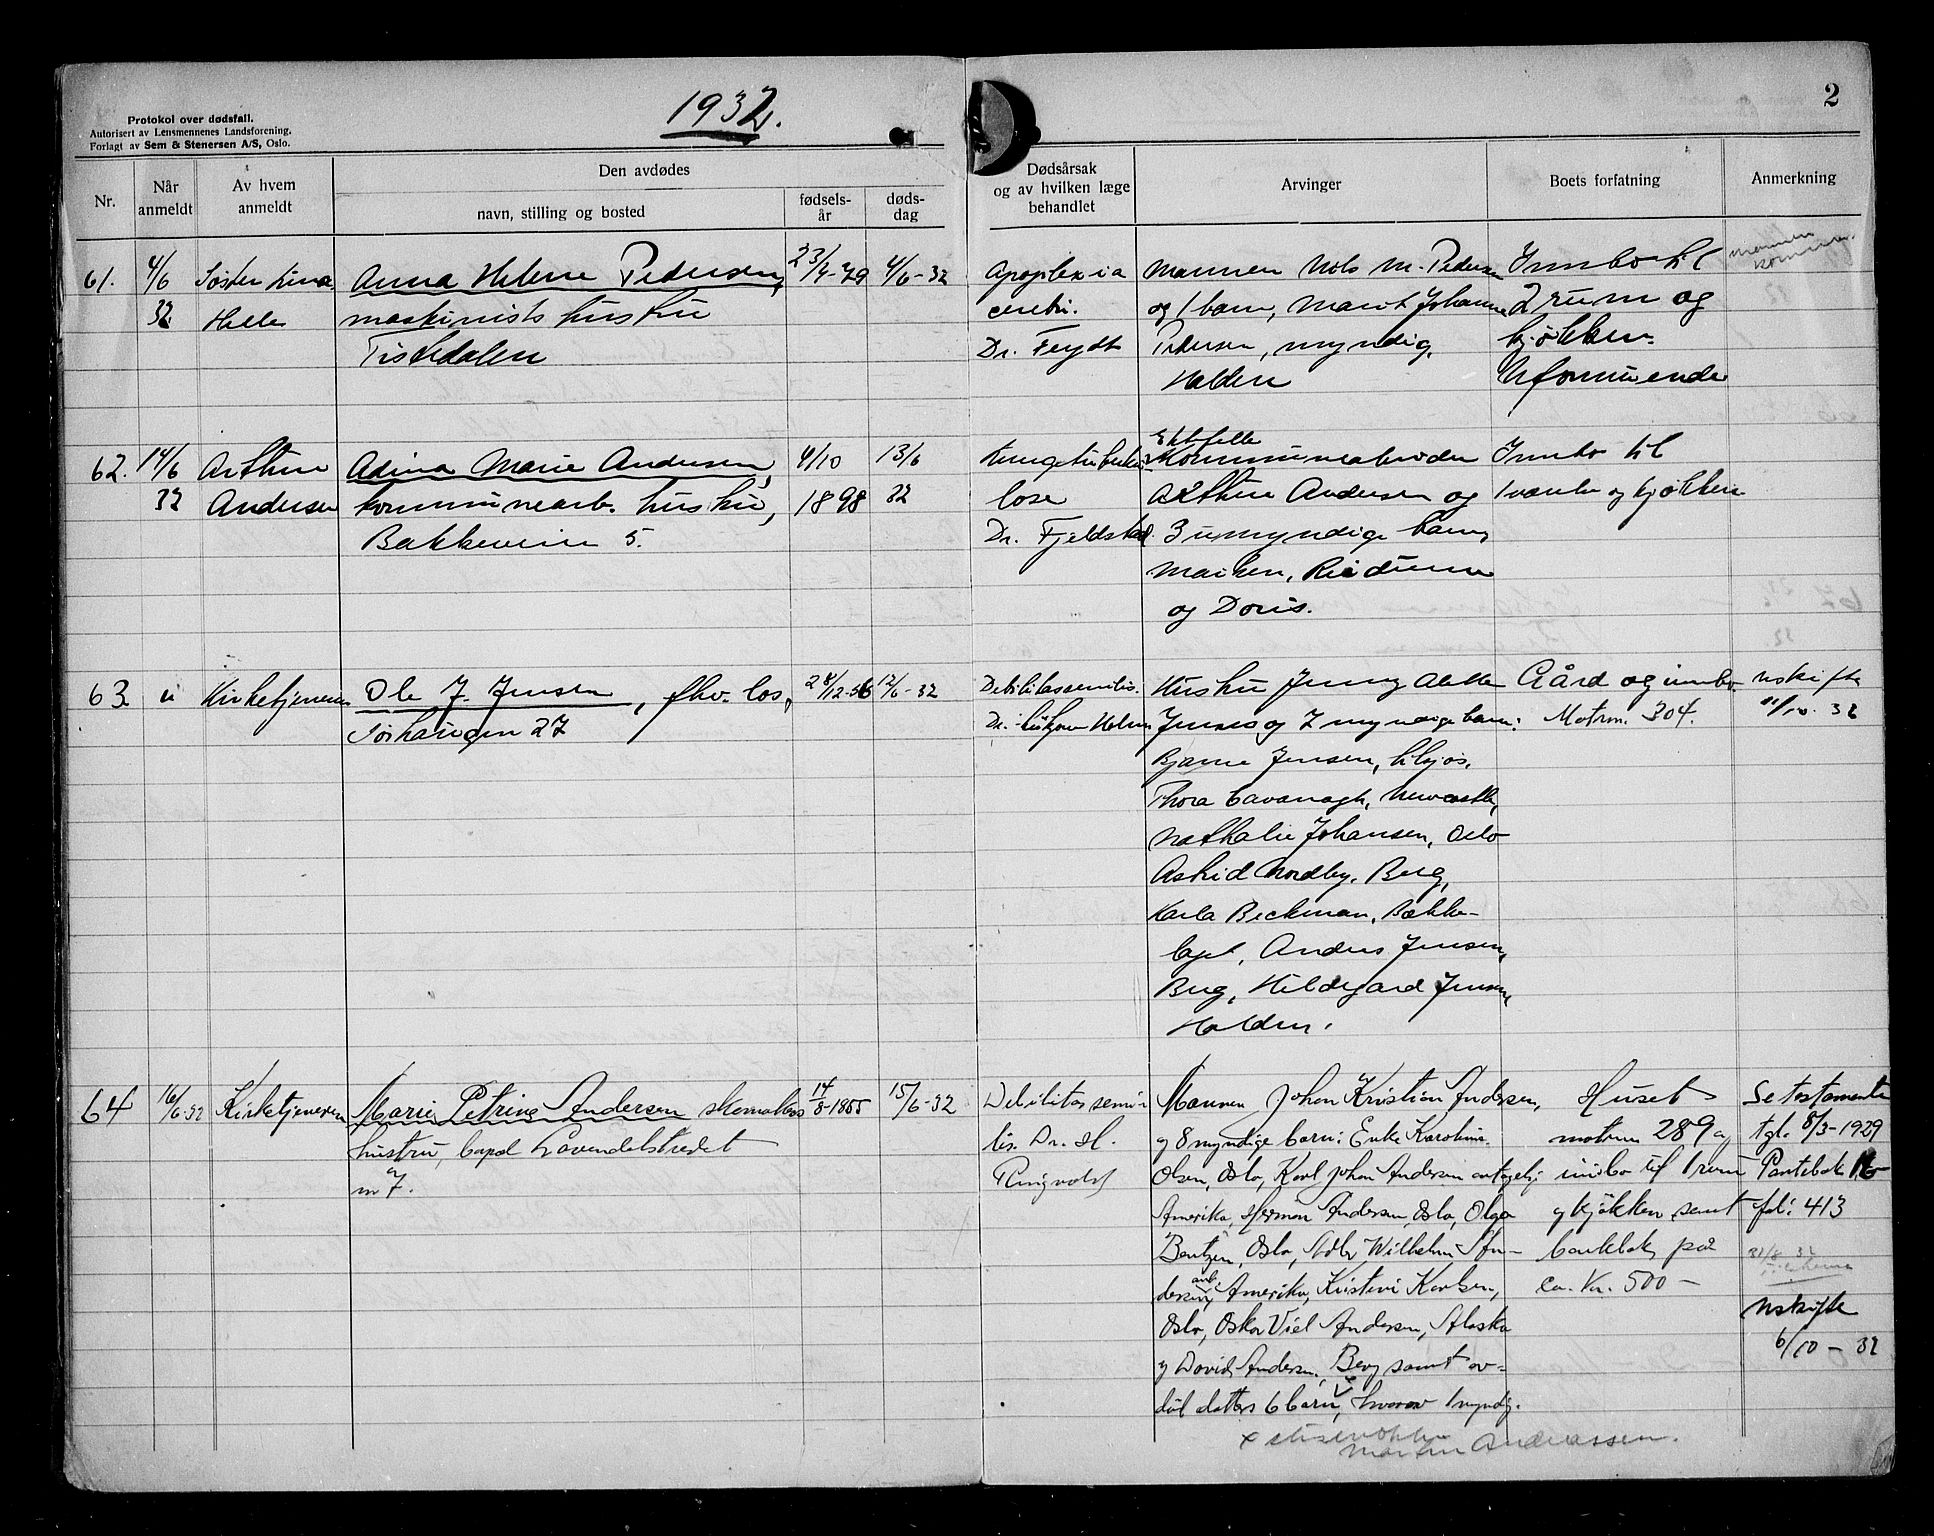 1932.
2
Protokol over dødsfall.
Autorisert av Lensmennenes Landsforening.
Forlagt av Sem & Stenersen A/S, Oslo.
Nr.
Når anmeldt
Av hvem anmeldt
Den avdødes
navn, stilling og bosted
fødsels-år
døds-dag
Dødsårsak og av hvilken læge behandlet
Arvinger
Boets forfatning
Anmerkning
61.
4/6 32
Søster Lina
Helle
Anna Helene Pedersen,
maskinists hustru
Tistedalen
4/6-32
Apoplexia
cerebri.
Dr. Feydt
Mannen Nels M. Pedersen
og 1 barn, Marit Johanne
Pedersen, myndig,
Halden
Innbo til
2 rum og
kjøkken.
Uformuende
mannen
62.
14/6 32
Arthur
Andersen
Adina Marie Andersen,
kommunearb. hustru,
Bakkeveien 5.
4/10
1898
13/6
32
Lungetuberku-
lose
Dr. Fjeldstad.
Ektefelle
Kommunearbeider
Arthur Andersen og
3 umyndige barn,
Maiken,
og Doris.
Innbo til
1 værelse og kjøkken
63
"
Kirketjeneren
Ole J. Jensen, fhv. los,
Sørhaugen 27
28/12-56
12/6-32
Debilitas senilis.
Hustru Jenny
Jensen og 7 myndige barn:
Bjarne Jensen,
Thora Cavanagh, Newcastle,
Nathalie Johansen, Oslo
Astrid Nordby, Berg,
Karla Beckman, Bække-
Anders Jensen,
Berg, Hildegard Jensen
Halden.
Gård og innbo
Matrn. 304.
uskifte
11/10. 32
64
16/6-32
Kirketjeneren
Marie Petrine Andersen skomakers
hustru, Lavendelstredet
n 7.
14/8-1855
15/6-32
Debilitas seni-
lis. Dr. H.
Ringvold
Mannen Johan Kristian Andersen,
og 8 myndige barn: Enke Karoline
Olsen, Oslo, Karl Johan Andersen antagelig
Amerika, Herman Andersen, Oslo, Olga
Bentzen, Oslo, Wilhelm An-
dersen, ant. Amerika, Kristine Karlsen,
Oslo, Oskar Viel Andersen, Alaska
og David Andersen, Berg samt av-
død datters 6 barn, hvorav 1 myndig.
Martin Andreassen.
Huset
matrn 289 og
innbo til 1 rum
og kjøkken, samt
bankbok på
ca. kr. 500-
Se testamente
tgl. 8/3-1929
Pantebok 16
fol: 413
31/8 32
Uskifte
6/10-32